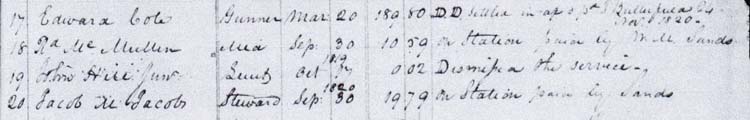 17 Edward Cole Gunner Mar 20 189 80 D.D. settled in ap o pt Nov. 1820
18 Ra Mc Mullen Sep. 30 10 59 on Station paid by Mr. Sands
19 John Hill Junr Lieut Oct 1819 0 02 Dismissed the service
20 Jacob M Jacobs Steward Sep. 1820 30 19 79 on Station paid by Sands